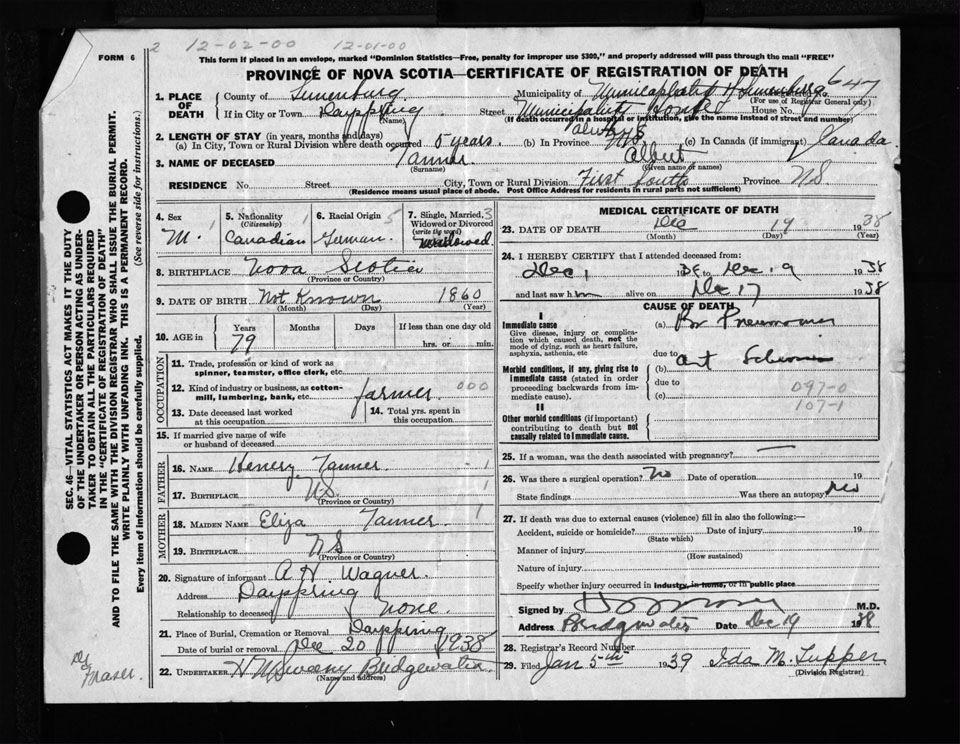 FORM 6
2 12-02-00 12-01-00
This form if placed in an envelope, marked "Dominion Statistics—Free, penalty for improper use $300," and properly addressed will pass through the mail "FREE"
PROVINCE OF NOVA SCOTIA—CERTIFICATE OF REGISTRATION OF DEATH
647
1. PLACE OF DEATH
County of Lunenburg Municipality of Municipality of Lunenburg
(For use of Registrar General only)
If in City or Town Dayspring Street Municipality House No.
(Name) (If death occurred in a hospital or institution, give the name instead of street and number)
2. LENGTH OF STAY (in years, months and days) always
(a) In City, Town or Rural Division where death occurred 5 years. (b) In Province NS. (c) In Canada (if immigrant) Canada
3. NAME OF DECEASED Tanner Albert
(Surname) (Given name or names)
RESIDENCE No. Street City, Town or Rural Division First South Province NS.
(Residence means usual place of abode. Post Office Address for residents in rural parts not sufficient)
4. Sex M. 1
5. Nationality (Citizenship) Canadian 1
6. Racial Origin German 5
7. Single, Married, Widowed or Divorced (write the word) Widowed 3
8. BIRTHPLACE Nova Scotia
(Province or Country)
9. DATE OF BIRTH Not Known 1860
(Month) (Day) (Year)
10. AGE in Years 79 Months Days If less than one day old hrs. or min.
11. Trade, profession or kind of work as spinner, teamster, office clerk, etc.
12. Kind of industry or business, as cotton-mill, lumbering, bank, etc. farmer 000
13. Date deceased last worked at this occupation
14. Total yrs. spent in this occupation
15. If married give name of wife or husband of deceased
FATHER
16. NAME Henery Tanner 1
17. BIRTHPLACE NS.
(Province or Country)
MOTHER
18. MAIDEN NAME Eliza Tanner 1
19. BIRTHPLACE NS
(Province or Country)
20. Signature of informant A. H. Wagner.
Address Dayspring
Relationship to deceased none.
21. Place of Burial, Cremation or Removal Dayspring
Date of burial or removal Dec 20 1938
22. UNDERTAKER Bridgewater
(Name and address)
MEDICAL CERTIFICATE OF DEATH
23. DATE OF DEATH Dec 19 1938
(Month) (Day) (Year)
24. I HEREBY CERTIFY that I attended deceased from:
Dec 1 to Dec 19 1938
and last saw him alive on Dec 17 1938
CAUSE OF DEATH
I
Immediate cause
Give disease, injury or complication which caused death, not the mode of dying, such as heart failure, asphyxia, asthenia, etc
(a) Br Pneumonia
due to
Morbid conditions, if any, giving rise to immediate cause (stated in order proceeding backwards from immediate cause).
(b) Art Sclerosis
due to
(c)
097-0
107-1
II
Other morbid conditions (if important) contributing to death but not causally related to immediate cause.
25. If a woman, was the death associated with pregnancy? —
26. Was there a surgical operation? No Date of operation 19
State findings Was there an autopsy? No
27. If death was due to external causes (violence) fill in also the following:—
Accident, suicide or homicide? Date of injury 19
(State which)
Manner of injury
(How sustained)
Nature of injury
Specify whether injury occurred in industry, in home, or in public place
Signed by M.D.
Address Bridgewater Date Dec 19 1938
28. Registrar's Record Number
29. Filed Jan 5th 1939 Ida M. Tupper
(Division Registrar)
SEC. 46—VITAL STATISTICS ACT MAKES IT THE DUTY OF THE UNDERTAKER OR PERSON ACTING AS UNDERTAKER TO OBTAIN ALL THE PARTICULARS REQUIRED IN THE "CERTIFICATE OF REGISTRATION OF DEATH" AND TO FILE THE SAME WITH THE DIVISION REGISTRAR WHO SHALL ISSUE THE BURIAL PERMIT.
WRITE PLAINLY WITH UNFADING INK. THIS IS A PERMANENT RECORD.
Every item of information should be carefully supplied. (See reverse side for instructions.)